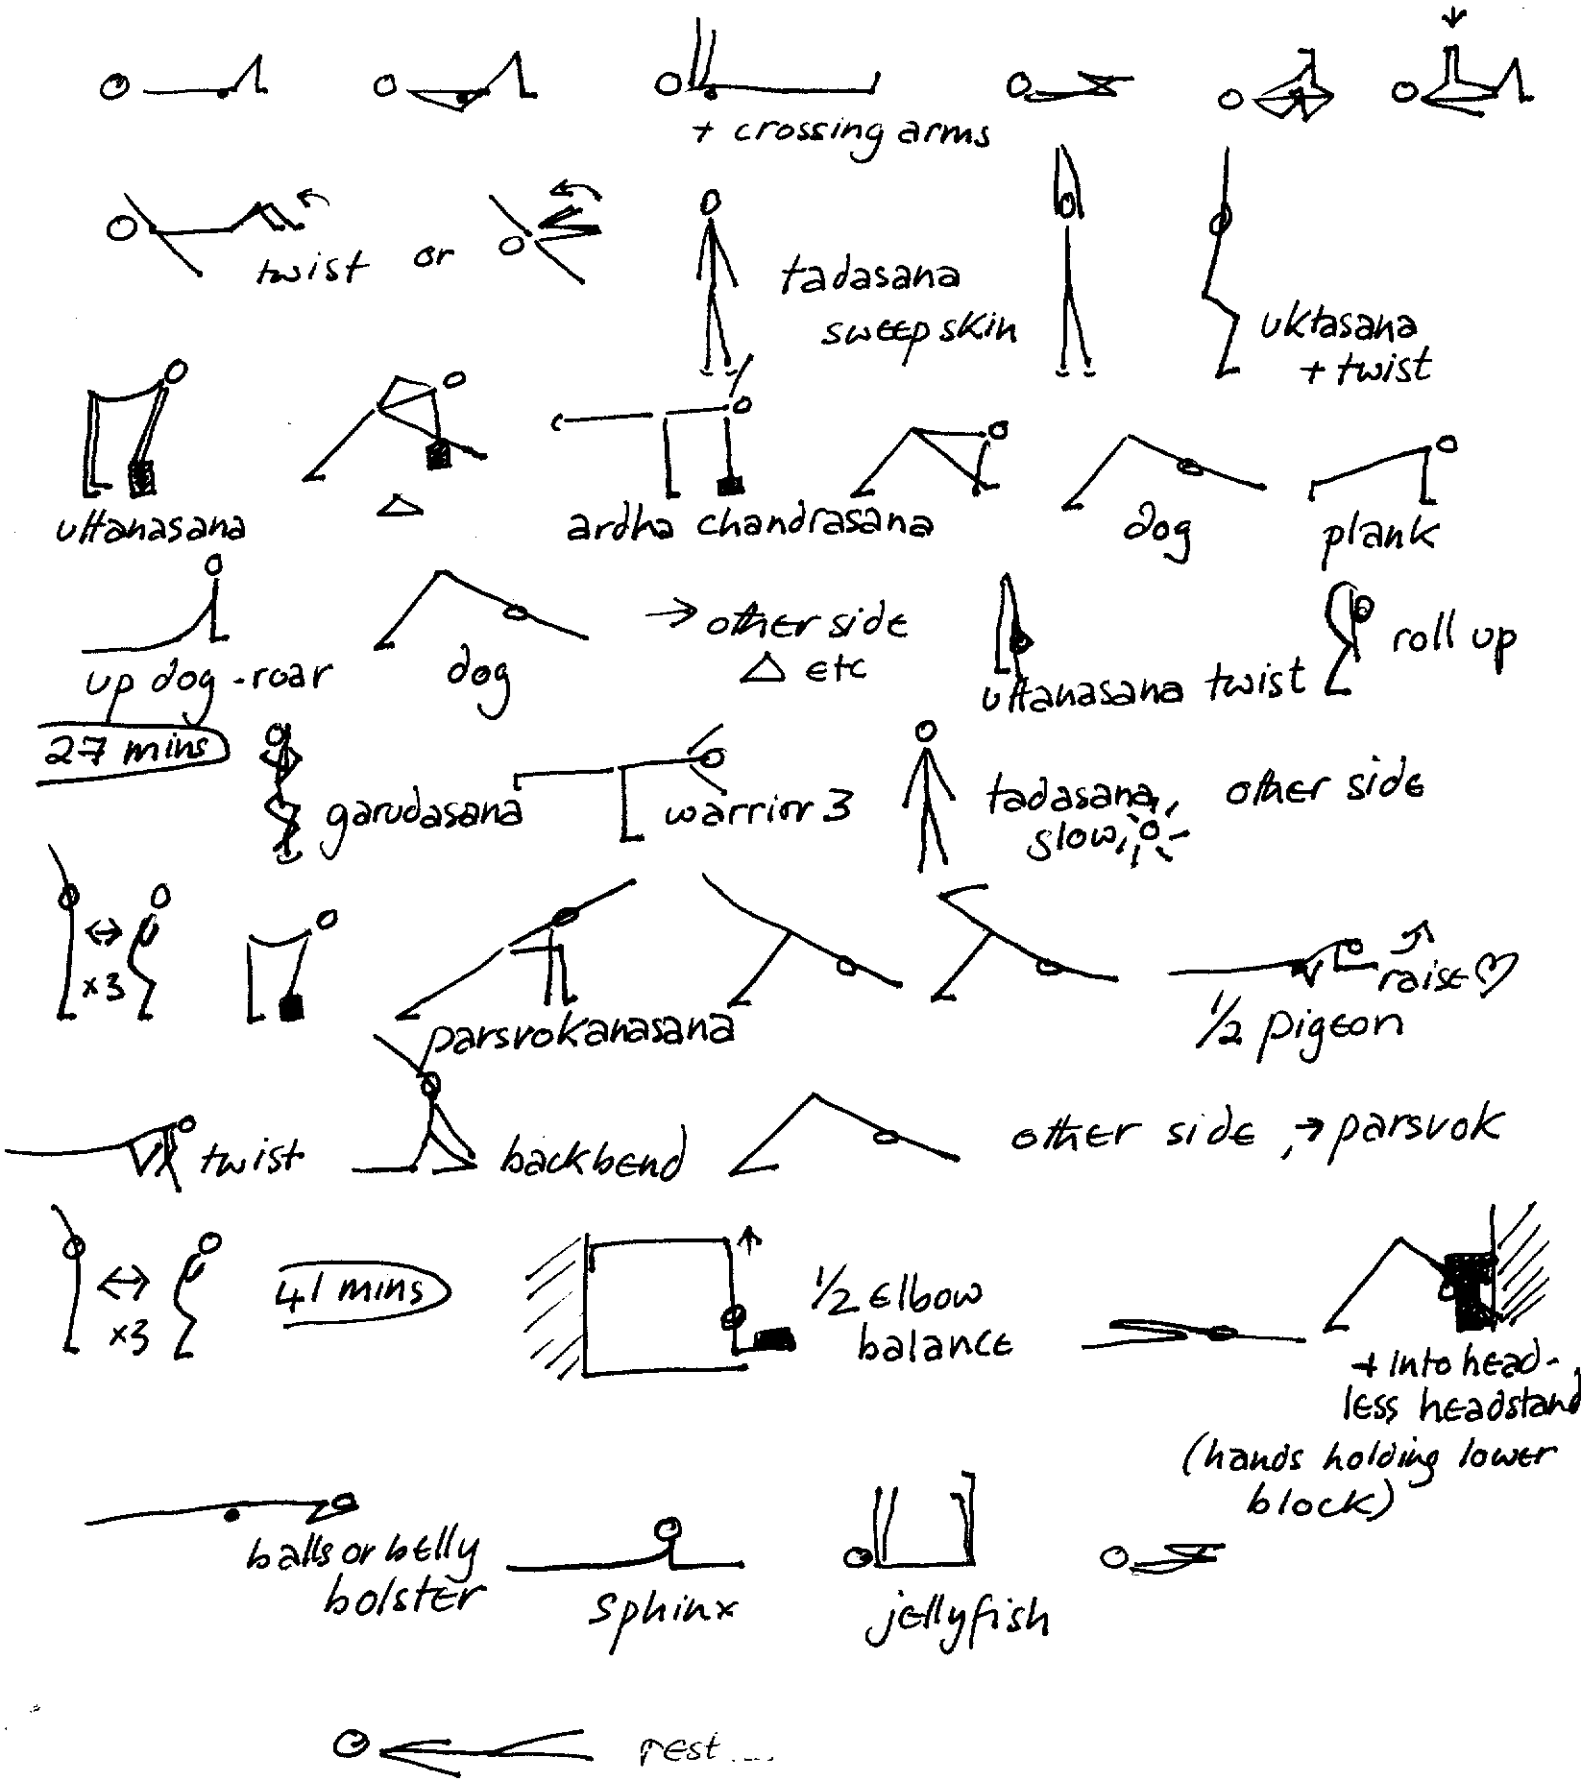 + crossing arms
twist or
tadasana
sweep skin
uktasana
+ twist
uttanasana
ardha chandrasana
dog
plank
up dog - roar
dog
→ other side
△ etc
uttanasana twist
roll up
27 mins
garudasana
warrior 3
tadasana,
slow,
other side
x3
parsvokanasana
raise ♡
1/2 pigeon
twist
backbend
other side, → parsvok
x3
41 mins
1/2 elbow
balance
+ into head-
less headstand
(hands holding lower
block)
balls or belly
bolster
sphinx
jellyfish
rest....